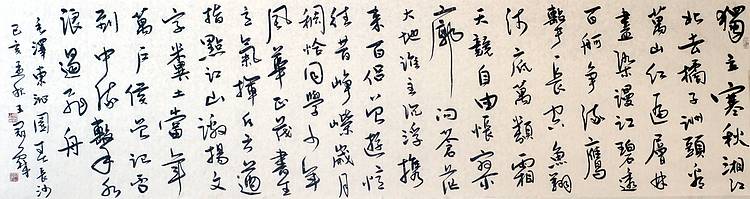 獨立寒秋湘江
北去橘子洲頭看
萬山紅遍層林
盡染漫江碧透
百舸争流鷹
擊長空魚翔
淺底萬類霜
天競自由悵寥
廓問蒼茫
大地誰主沉浮携
来百侣曾遊憶
往昔崢嶸歲月
稠恰同學少年
風華正茂書生
意氣揮斥方遒
指點江山激揚文
字糞土當年
萬户侯曾記否
到中流擊水
浪遏飛舟
毛澤東沁園春長沙
己亥孟秋王